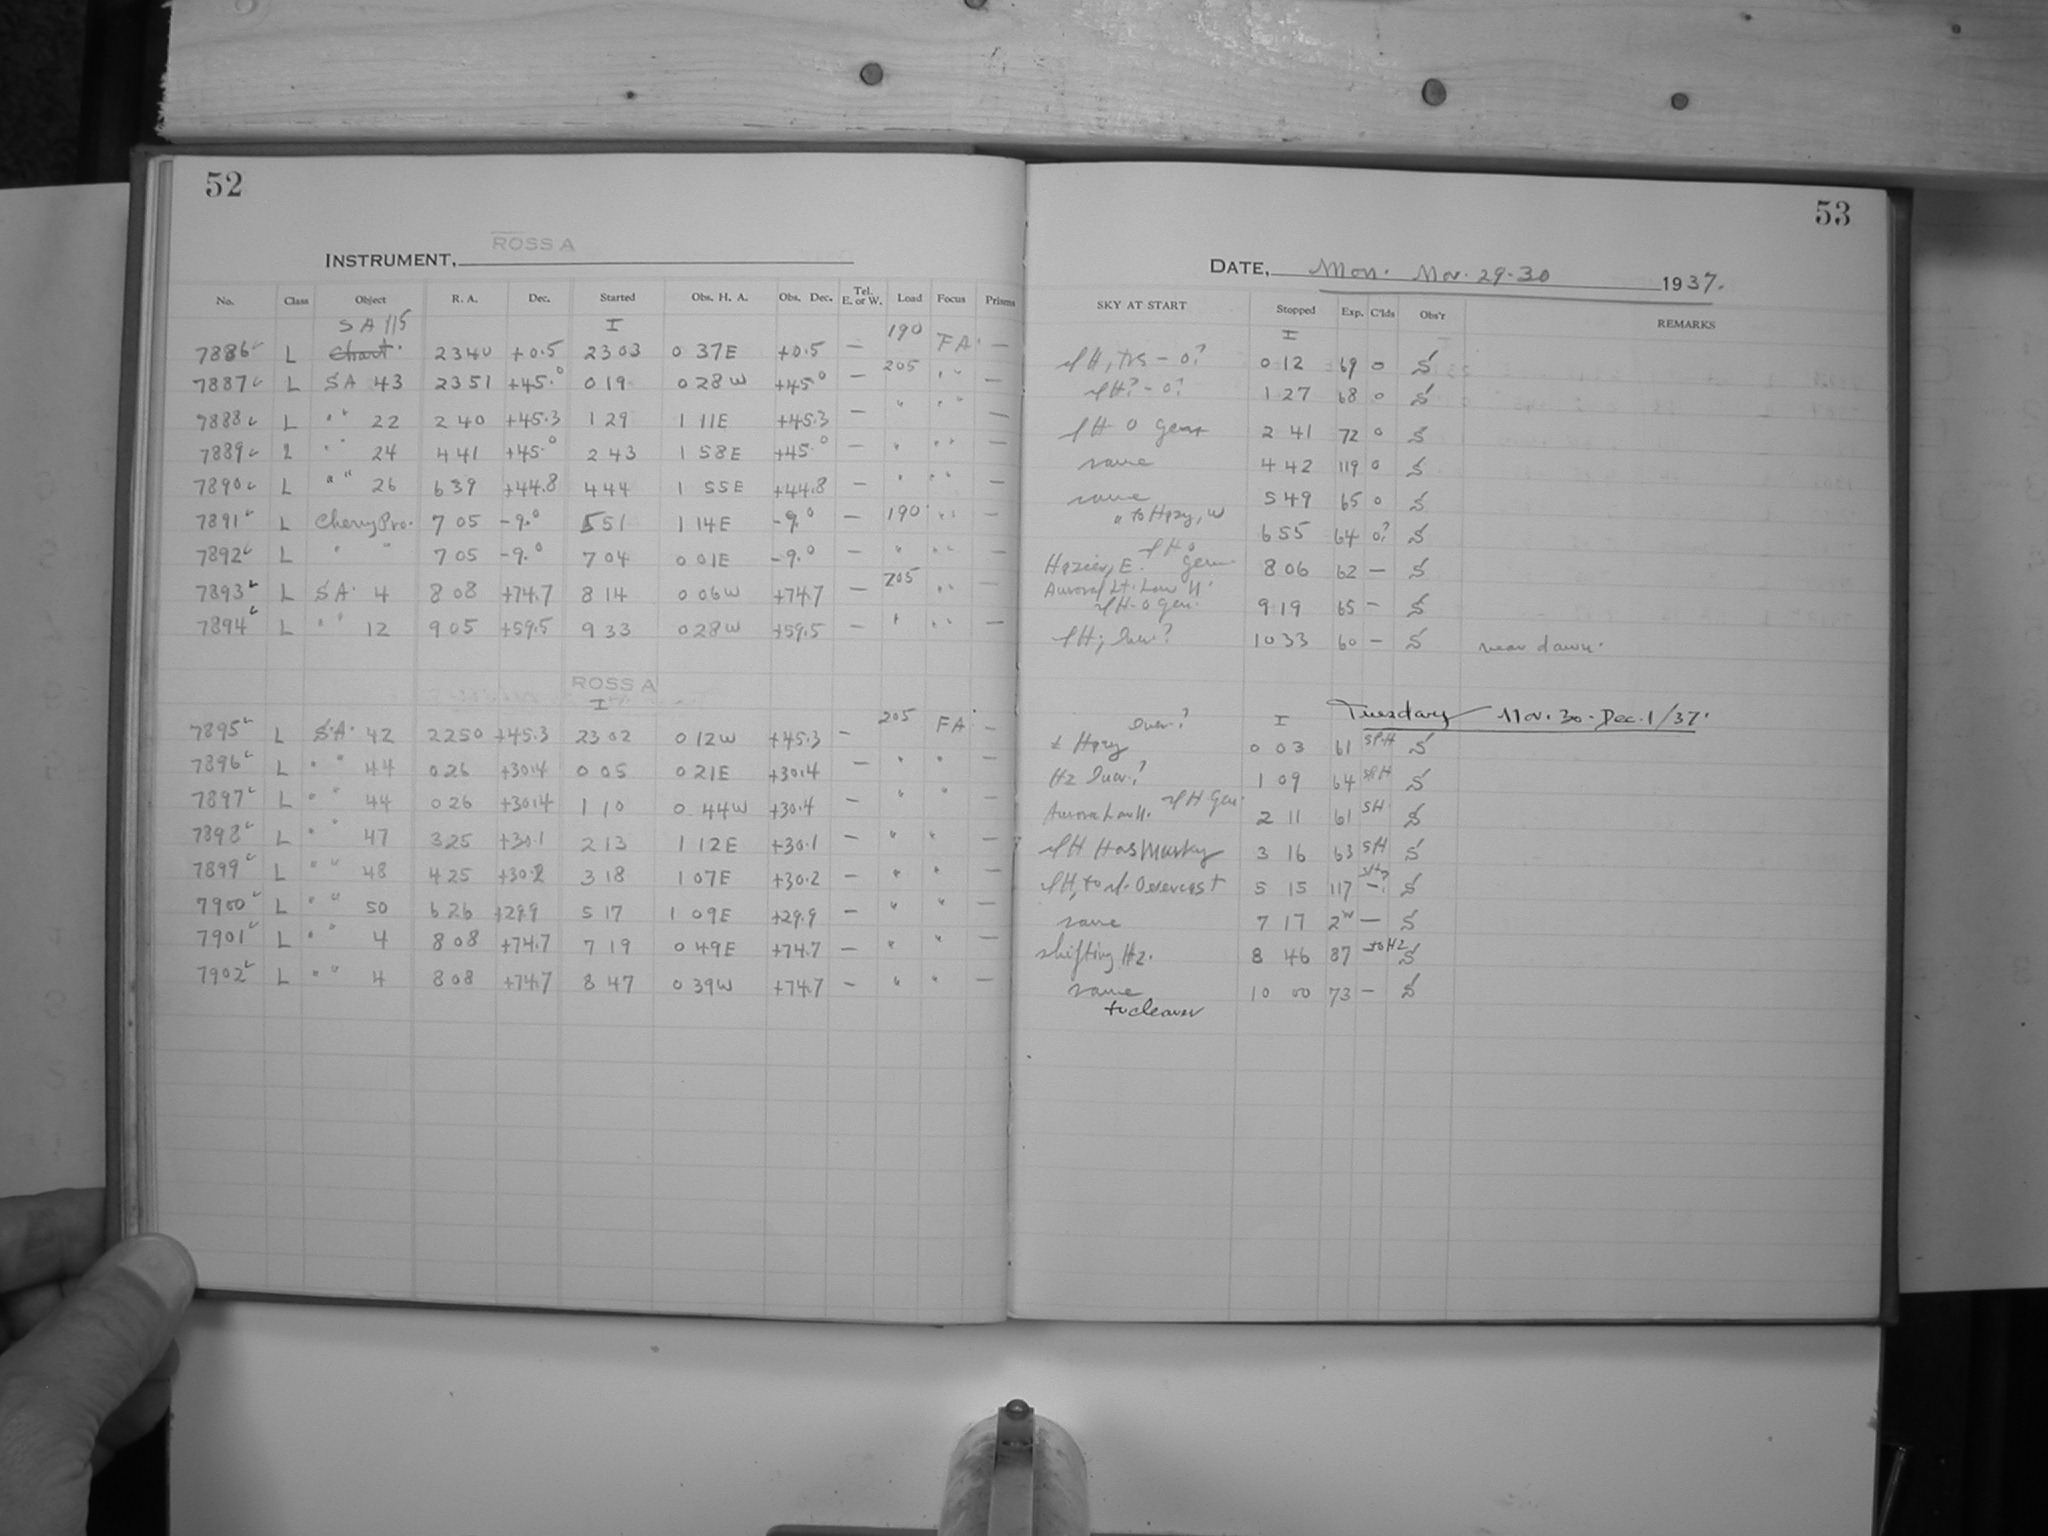 52
INSTRUMENT, ROSS A
No. Class Object R. A. Dec. Started Obs. H. A. Obs. Dec. Tel. E. or W. Load Focus Prisms
SA 115 I 190
7886 L Chart. 23 40 +0.5 23 03 0 37E +0.5 — FA. —
7887 L SA 43 23 51 +45.° 0 19 0 28W +45° — 205 " " —
7888 L " " 22 2 40 +45.3 1 29 1 11E +45.3 — " " " —
7889 L " 24 4 41 +45.° 2 43 1 58E +45.° — " " " —
7890 L " " 26 6 39 +44.8 4 44 1 55E +44.8 — " " " —
7891 L Cherry Pro. 7 05 -9.° 5 51 1 14E -9.° — 190 " " —
7892 L " " 7 05 -9.° 7 04 0 01E -9.° — " " " —
7893 L SA. 4 8 08 +74.7 8 14 0 06W +74.7 — 205 " " —
7894 L " " 12 9 05 +59.5 9 33 0 28W +59.5 — " " " —
ROSS A
I
7895 L S.A. 42 22 50 +45.3 23 02 0 12W +45.3 — 205 FA. —
7896 L " " 44 0 26 +30.4 0 05 0 21E +30.4 — " " —
7897 L " " 44 0 26 +30.4 1 10 0 44W +30.4 — " " —
7898 L " " 47 3 25 +30.1 2 13 1 12E +30.1 — " " —
7899 L " " 48 4 25 +30.2 3 18 1 07E +30.2 — " " —
7900 L " " 50 6 26 +29.9 5 17 1 09E +29.9 — " " —
7901 L " " 4 8 08 +74.7 7 19 0 49E +74.7 — " " —
7902 L " " 4 8 08 +74.7 8 47 0 39W +74.7 — " " —
53
DATE, Mon. Nov. 29-30 1937.
SKY AT START Stopped Exp. C'lds Obs'r REMARKS
I
0 12 69 0 S
1 27 68 0 S
2 41 72 0 S
same 4 42 119 0 S
same 5 49 65 0 S
" to Hazy, W 6 55 64 0? S
Hazier, E. 8 06 62 — S
Auroral Lt. Low N.
9 19 65 — S
10 33 60 — S near dawn.
I Tuesday Nov. 30-Dec. 1/37.
Hazy 0 03 61 S
Hz 1 09 64 S
Aurora Low N. 2 11 61 SH S
3 16 63 SH S
Overcast 5 15 117 — S
same 7 17 — S
shifting Hz. 8 46 87 to Hz S
same 10 00 73 — S
to clearer